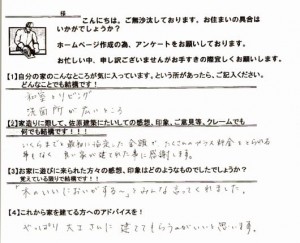 様
こんにちは。ご無沙汰しております。お住まいの具合は
いかがでしょうか？
ホームページ作成の為、アンケートをお願いしております。
お忙しい中、申し訳ございませんがお手すきの際宜しくお願いします。
【1】自分の家のこんなところが気に入っています。という所があったら、ご記入ください。
どんなことでも結構です！
和室とリビング
洗面所が広いところ
【2】家造りに際して、佐原建築にたいしての感想、印象、ご意見等、クレームでも
何でも結構です！！！
いくらまでと最初に指定した金額がたくさんのプラス料金をとられる
事もなく良い家が建てれた事に感謝します。
【3】お家に遊びに来られた方々の感想、印象はどのようなものでしたでしょうか？
覚えている限りで結構です！
「木のいいにおいがする～」とみんな言ってくれました。
【4】これから家を建てる方へのアドバイスを！
やっぱり大工さんに建ててもらうのがいいと思います。